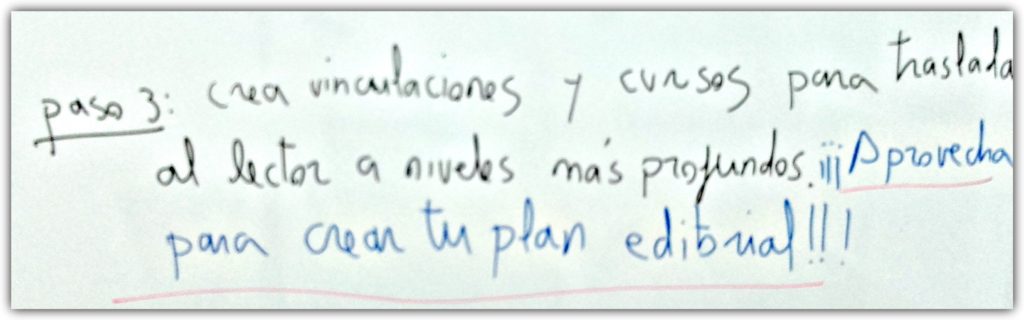 paso 3: crea vinculaciones y cursos para traslada
al lector a niveles más profundos. ¡¡¡Aprovecha
para crear tu plan editorial!!!